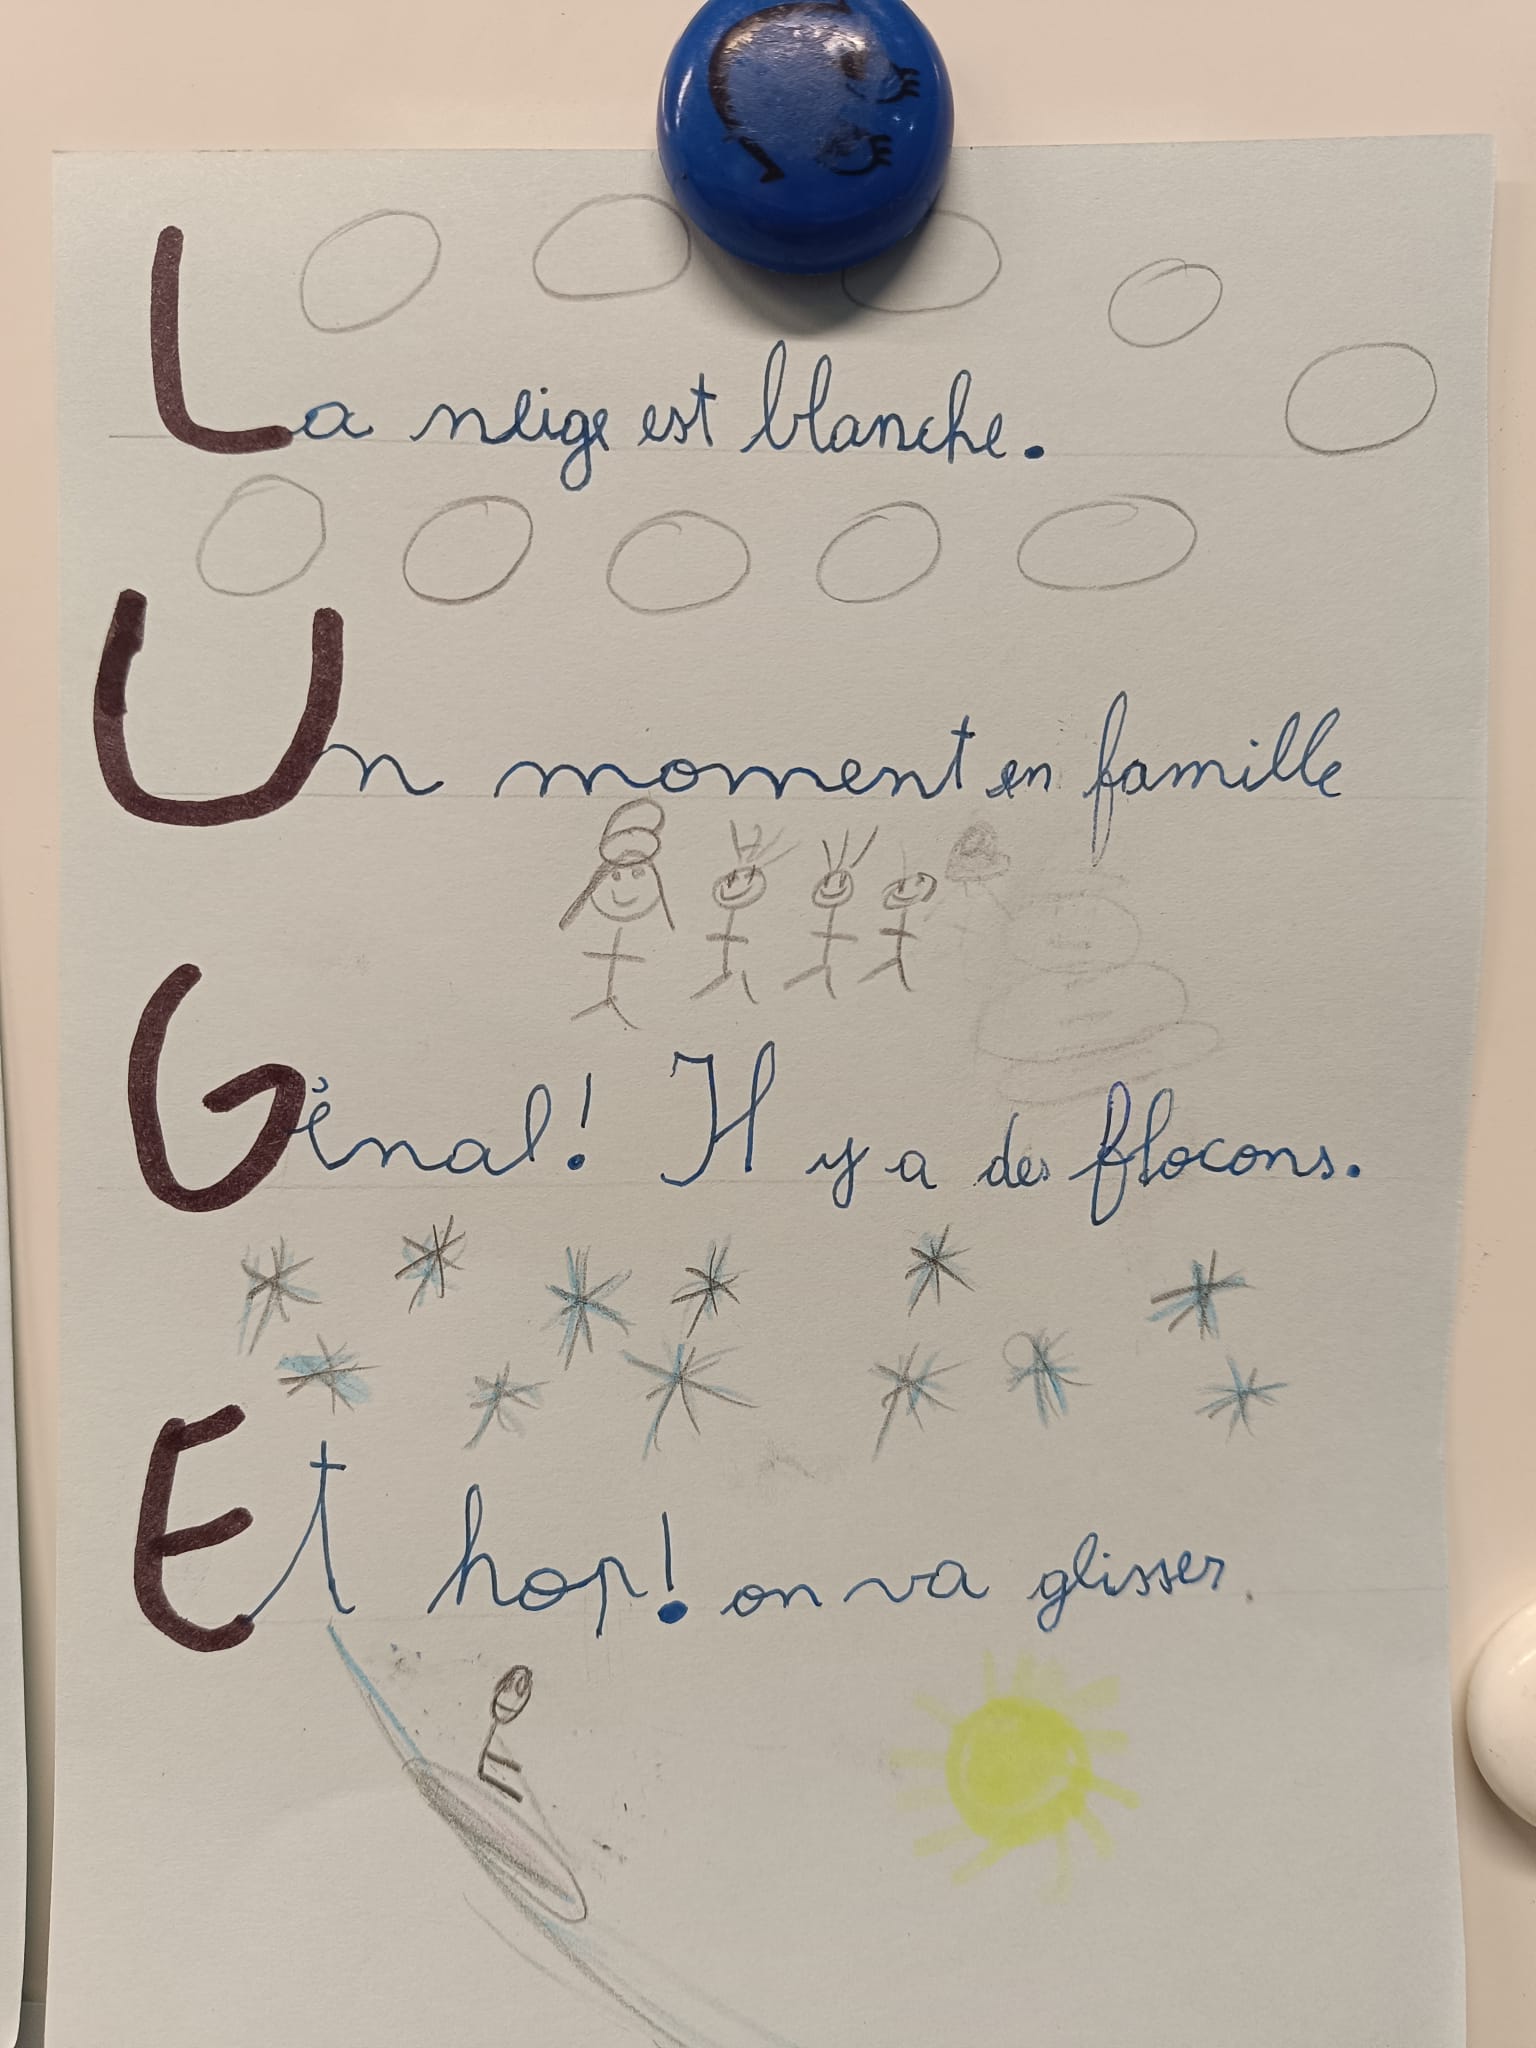 La neige est blanche.
Un moment en famille
Génal! Il y a des flocons.
Et hop! on va glisser.